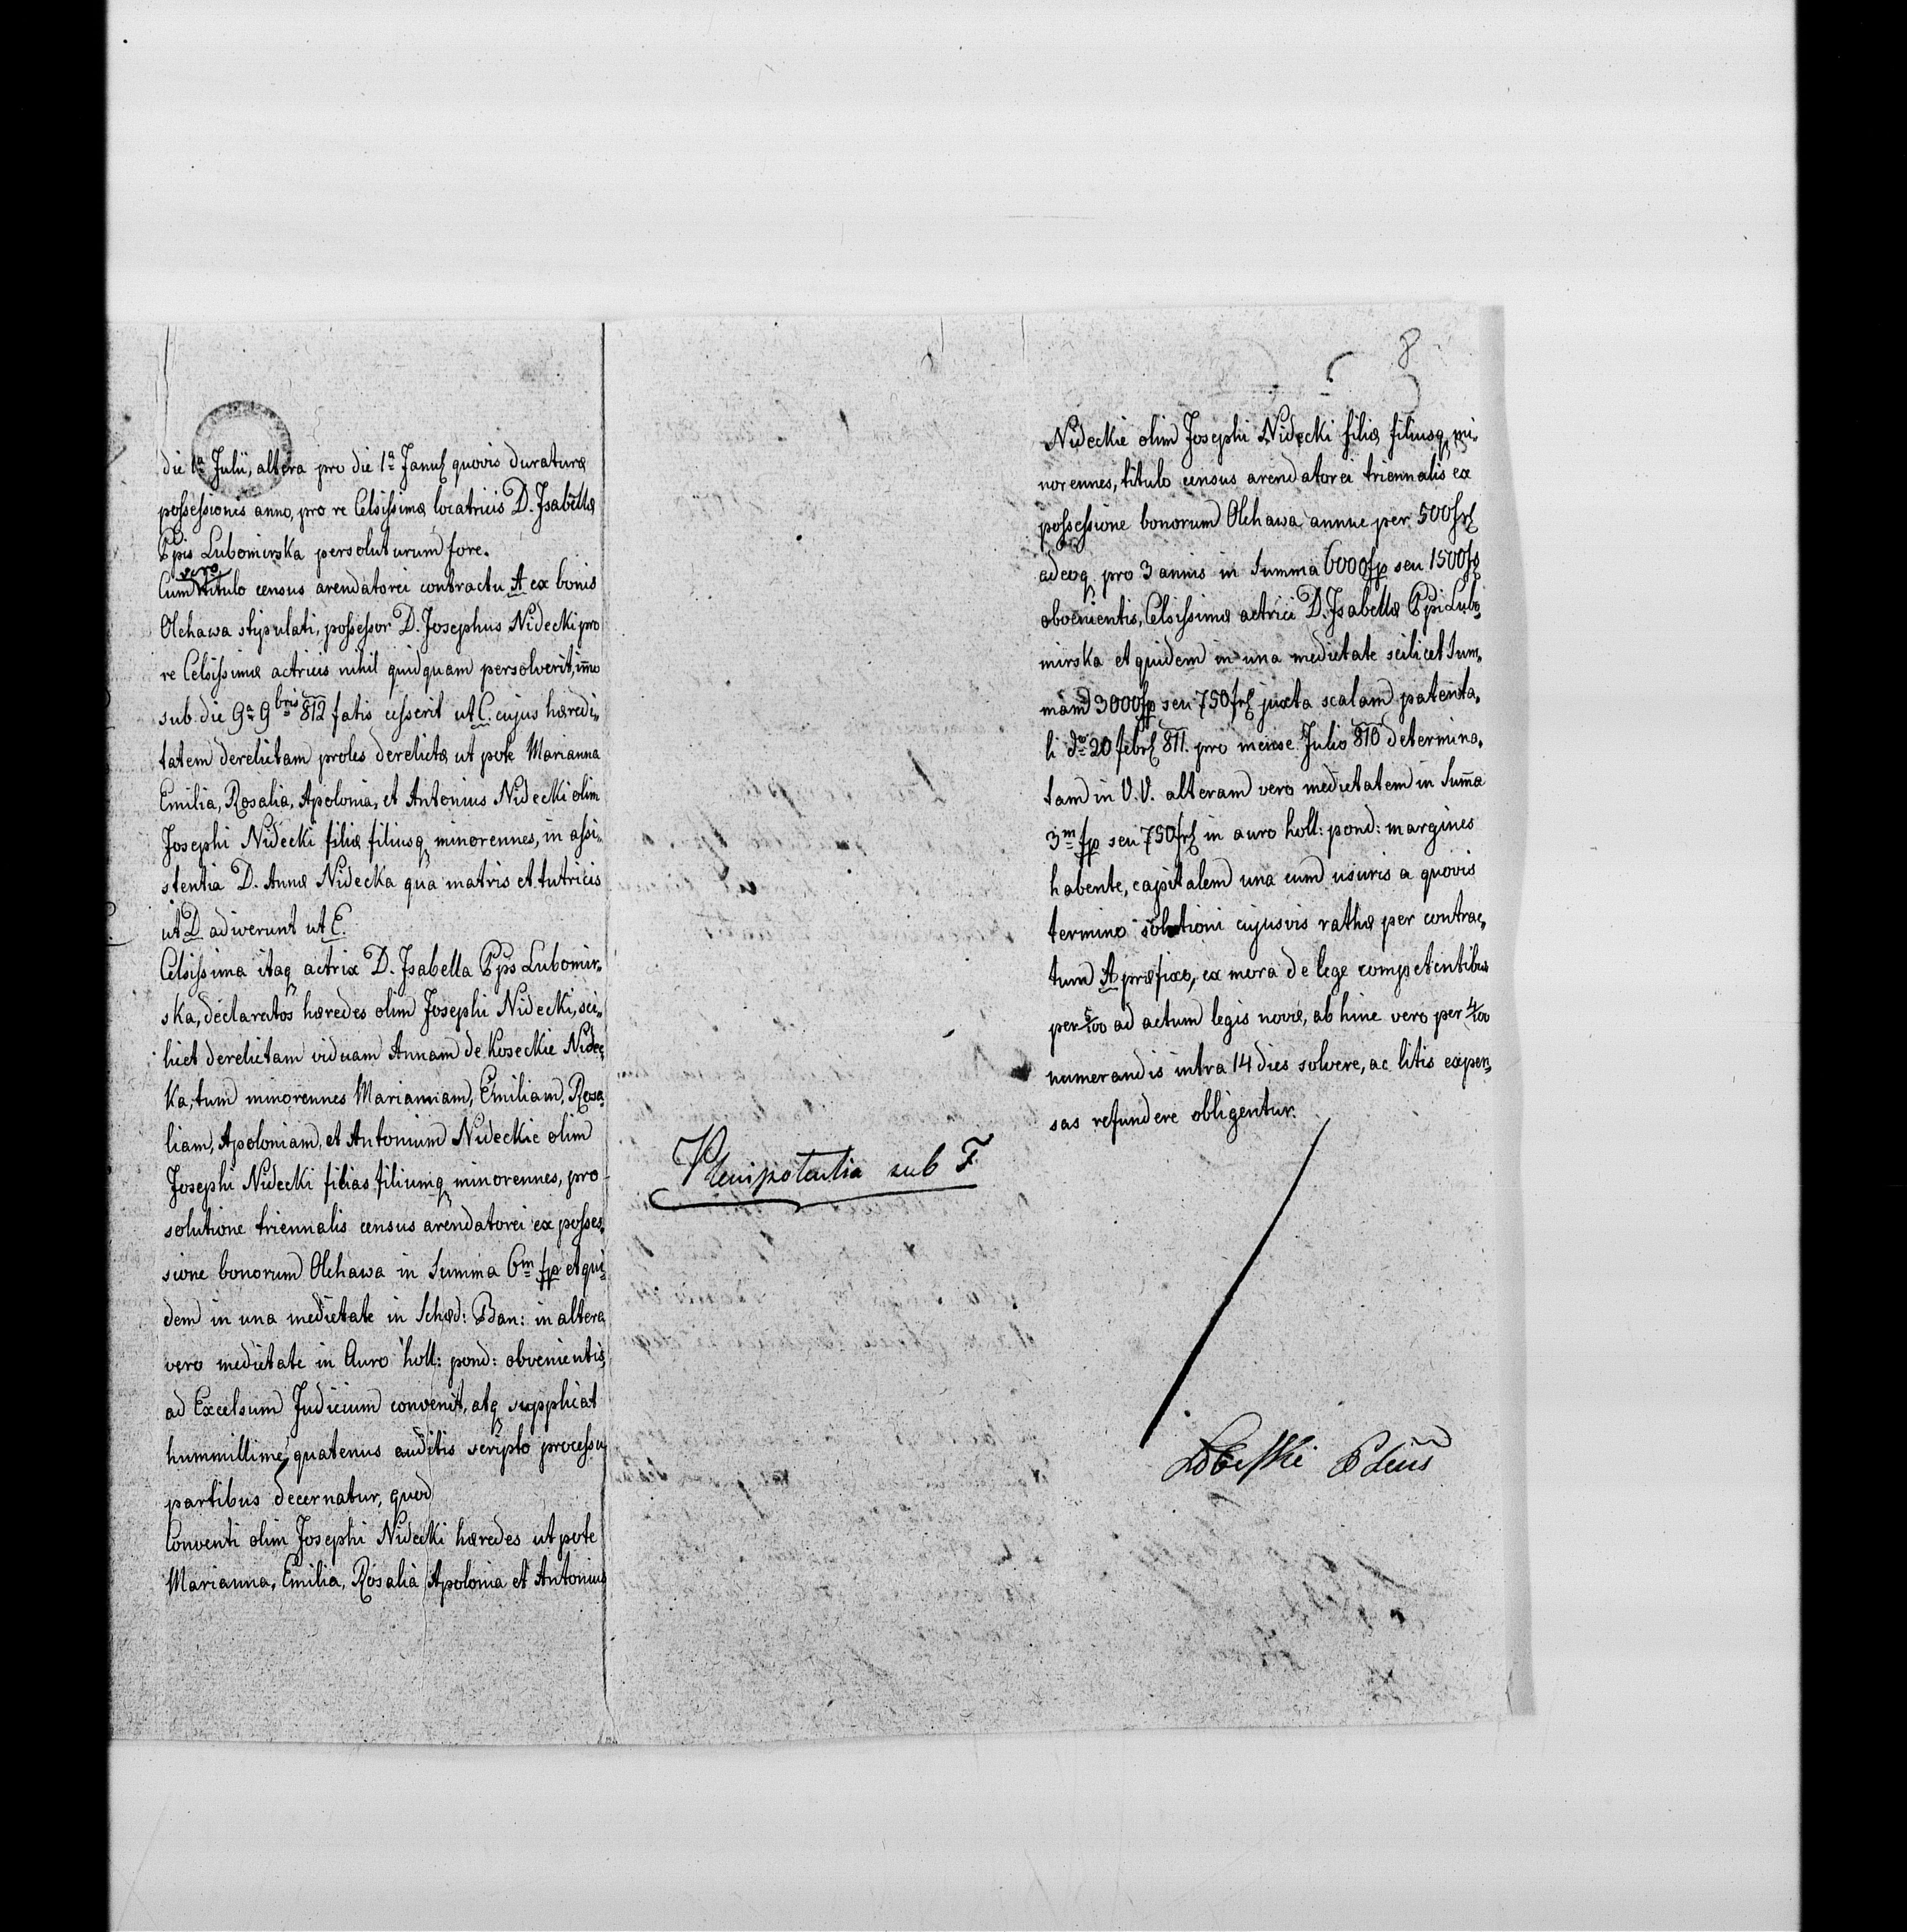 die 1ª Julii, altera pro die 1ª Janu quovis duraturæ
possessionis anno, pro re Celsissimæ locatricis D. Isabellæ
Ppis Lubomirska persoluturum fore.
vero
Cum titulo census arendatorei contractu A ex bonis
Olchawa stipulati, possessor D. Josephus Nidecki pro
re Celsissimæ actricis nihil quidquam persolverit, imo
sub die 9ª 9bris 812 fatis cesserit ut C. cujus hæredi„
tatem derelictam proles derelictæ ut pote Marianna
Emilia, Rosalia, Apolonia, et Antonius Nidecki olim
Josephi Nidecki filiæ filiusq minorennes, in assi„
stentia D. Annæ Nidecka qua matris et tutricis
ut D adiverunt ut E.
Celsissima itaq actrix D. Isabella Pps Lubomir„
ska, declaratos hæredes olim Josephi Nidecki, sci„
licet derelictam viduam Annam de Koseckie Nidec„
ka, tum minorennes Mariannam, Emiliam, Rosa
liam, Apoloniam, et Antonium Nideckie olim
Josephi Nidecki filias filiumq minorennes, pro
solutione triennalis census arendatorei ex posses„
sione bonorum Olchawa in Summa 6m fp et qui„
dem in una medietate in Sched: Ban: in altera
vero medietate in Auro holl: pond: obvenientis,
ad Excelsum Judicium convenit, atq supplicat
hummillime, quatenus auditis scripto processu
partibus decernatur, quod
Conventi olim Josephi Nidecki hæredes ut pote
Marianna, Emilia, Rosalia Apolonia et Antonius
Plenipotentia sub F.
8
Nideckie olim Josephi Nidecki filiæ filiusq mi„
norennes, titulo census arendatorei triennalis ex
possessione bonorum Olchawa annue per 500 fr
adeoq pro 3 annis in Summa 6000 fp seu 1500 fr
obvenientis, Celsissimæ actrici D. Isabellæ Ppi Lubo„
mirska et quidem in una medietate scilicet Sum„
mam 3000 fp seu 750 fr juxta scalam patenta„
li do 20 febr 811. pro mense Julio 810 determina„
tam in V.V. alteram vero medietatem in Suma
3m fp seu 750 fr in auro holl: pond: margines
habente, capitalem una cum usuris a quovis
termino solutioni cujusvis rathæ per contrac„
tum A præfixo, ex mora de lege competentibus
per 5/100 ad actum legis novæ, ab hinc vero per 4/100
numerandis intra 14 dies solvere, ac litis expen„
sas refundere obligentur.